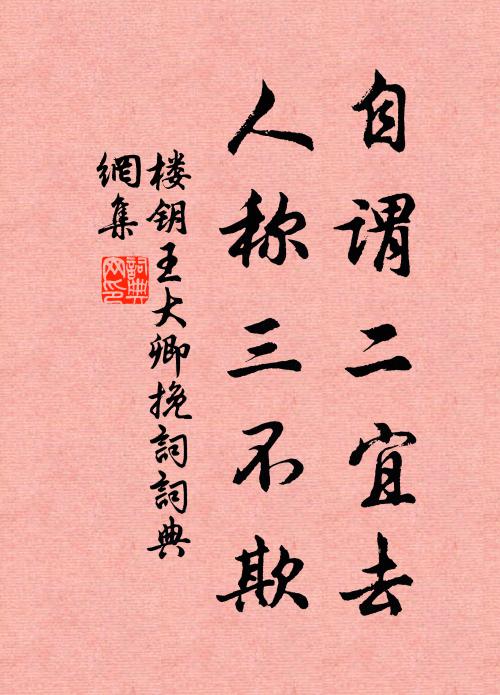 自谓二宜去
人称三不欺
楼钥王大卿挽詞詞典
網集
詞典网印